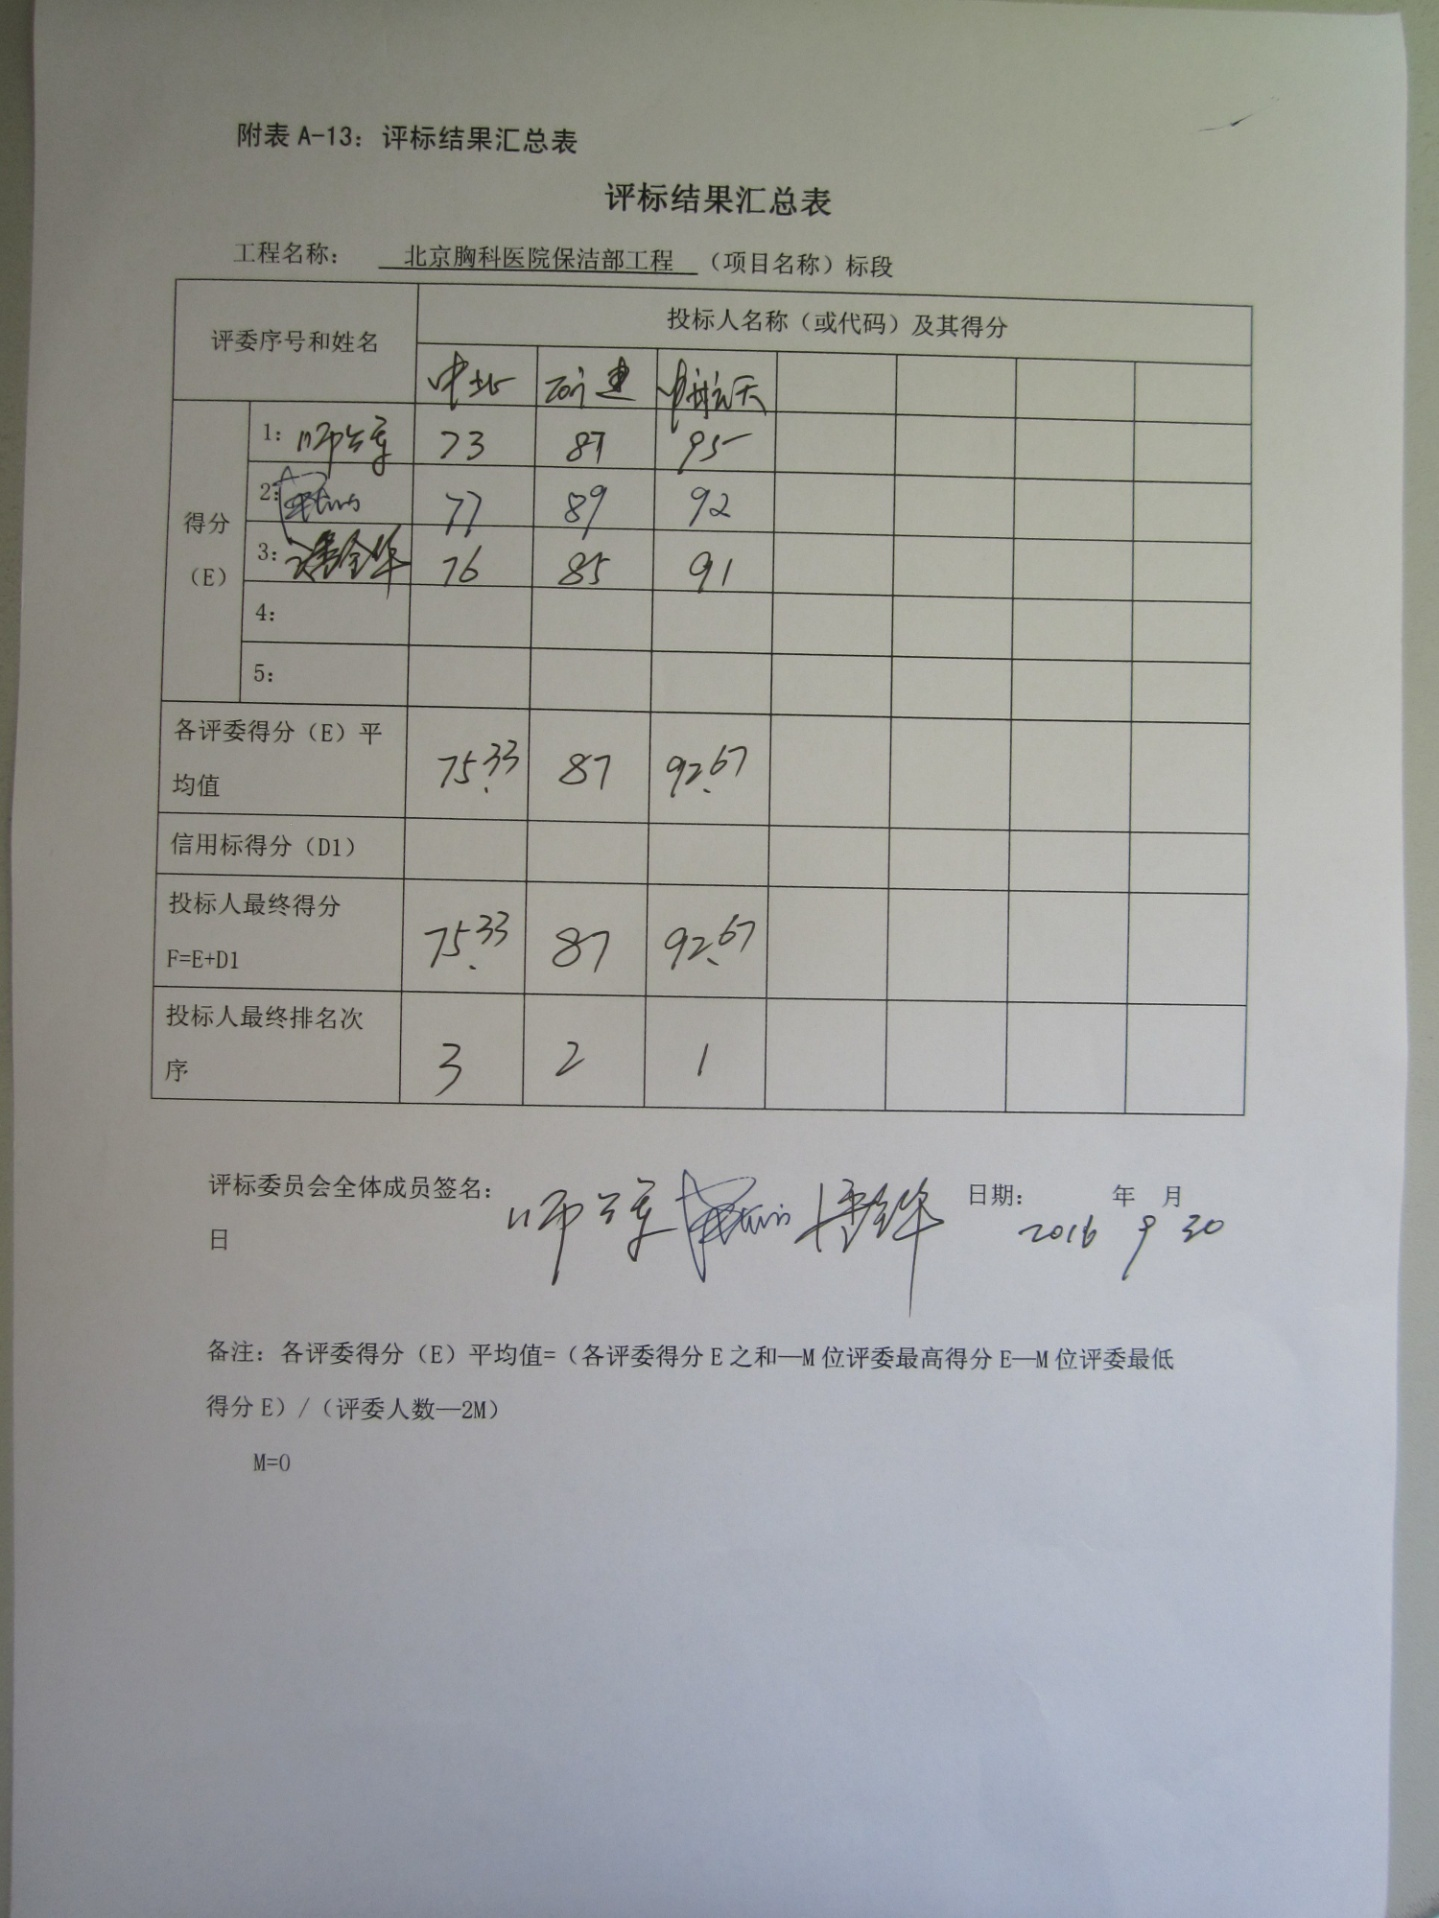 附表 A-13：评标结果汇总表
评标结果汇总表
工程名称： 北京胸科医院保洁部工程 （项目名称）标段
评委序号和姓名
投标人名称（或代码）及其得分
中北 建 中航天
得分
（E）
1： 73 87 95
2： 77 89 92
3： 76 85 91
4：
5：
各评委得分（E）平
均值
75.33 87 92.67
信用标得分（D1）
投标人最终得分
F=E+D1
75.33 87 92.67
投标人最终排名次
序
3 2 1
评标委员会全体成员签名： 日期： 年 月
日
2016 9 30
备注：各评委得分（E）平均值=（各评委得分 E 之和—M 位评委最高得分 E—M 位评委最低
得分 E）/（评委人数—2M）
M=0